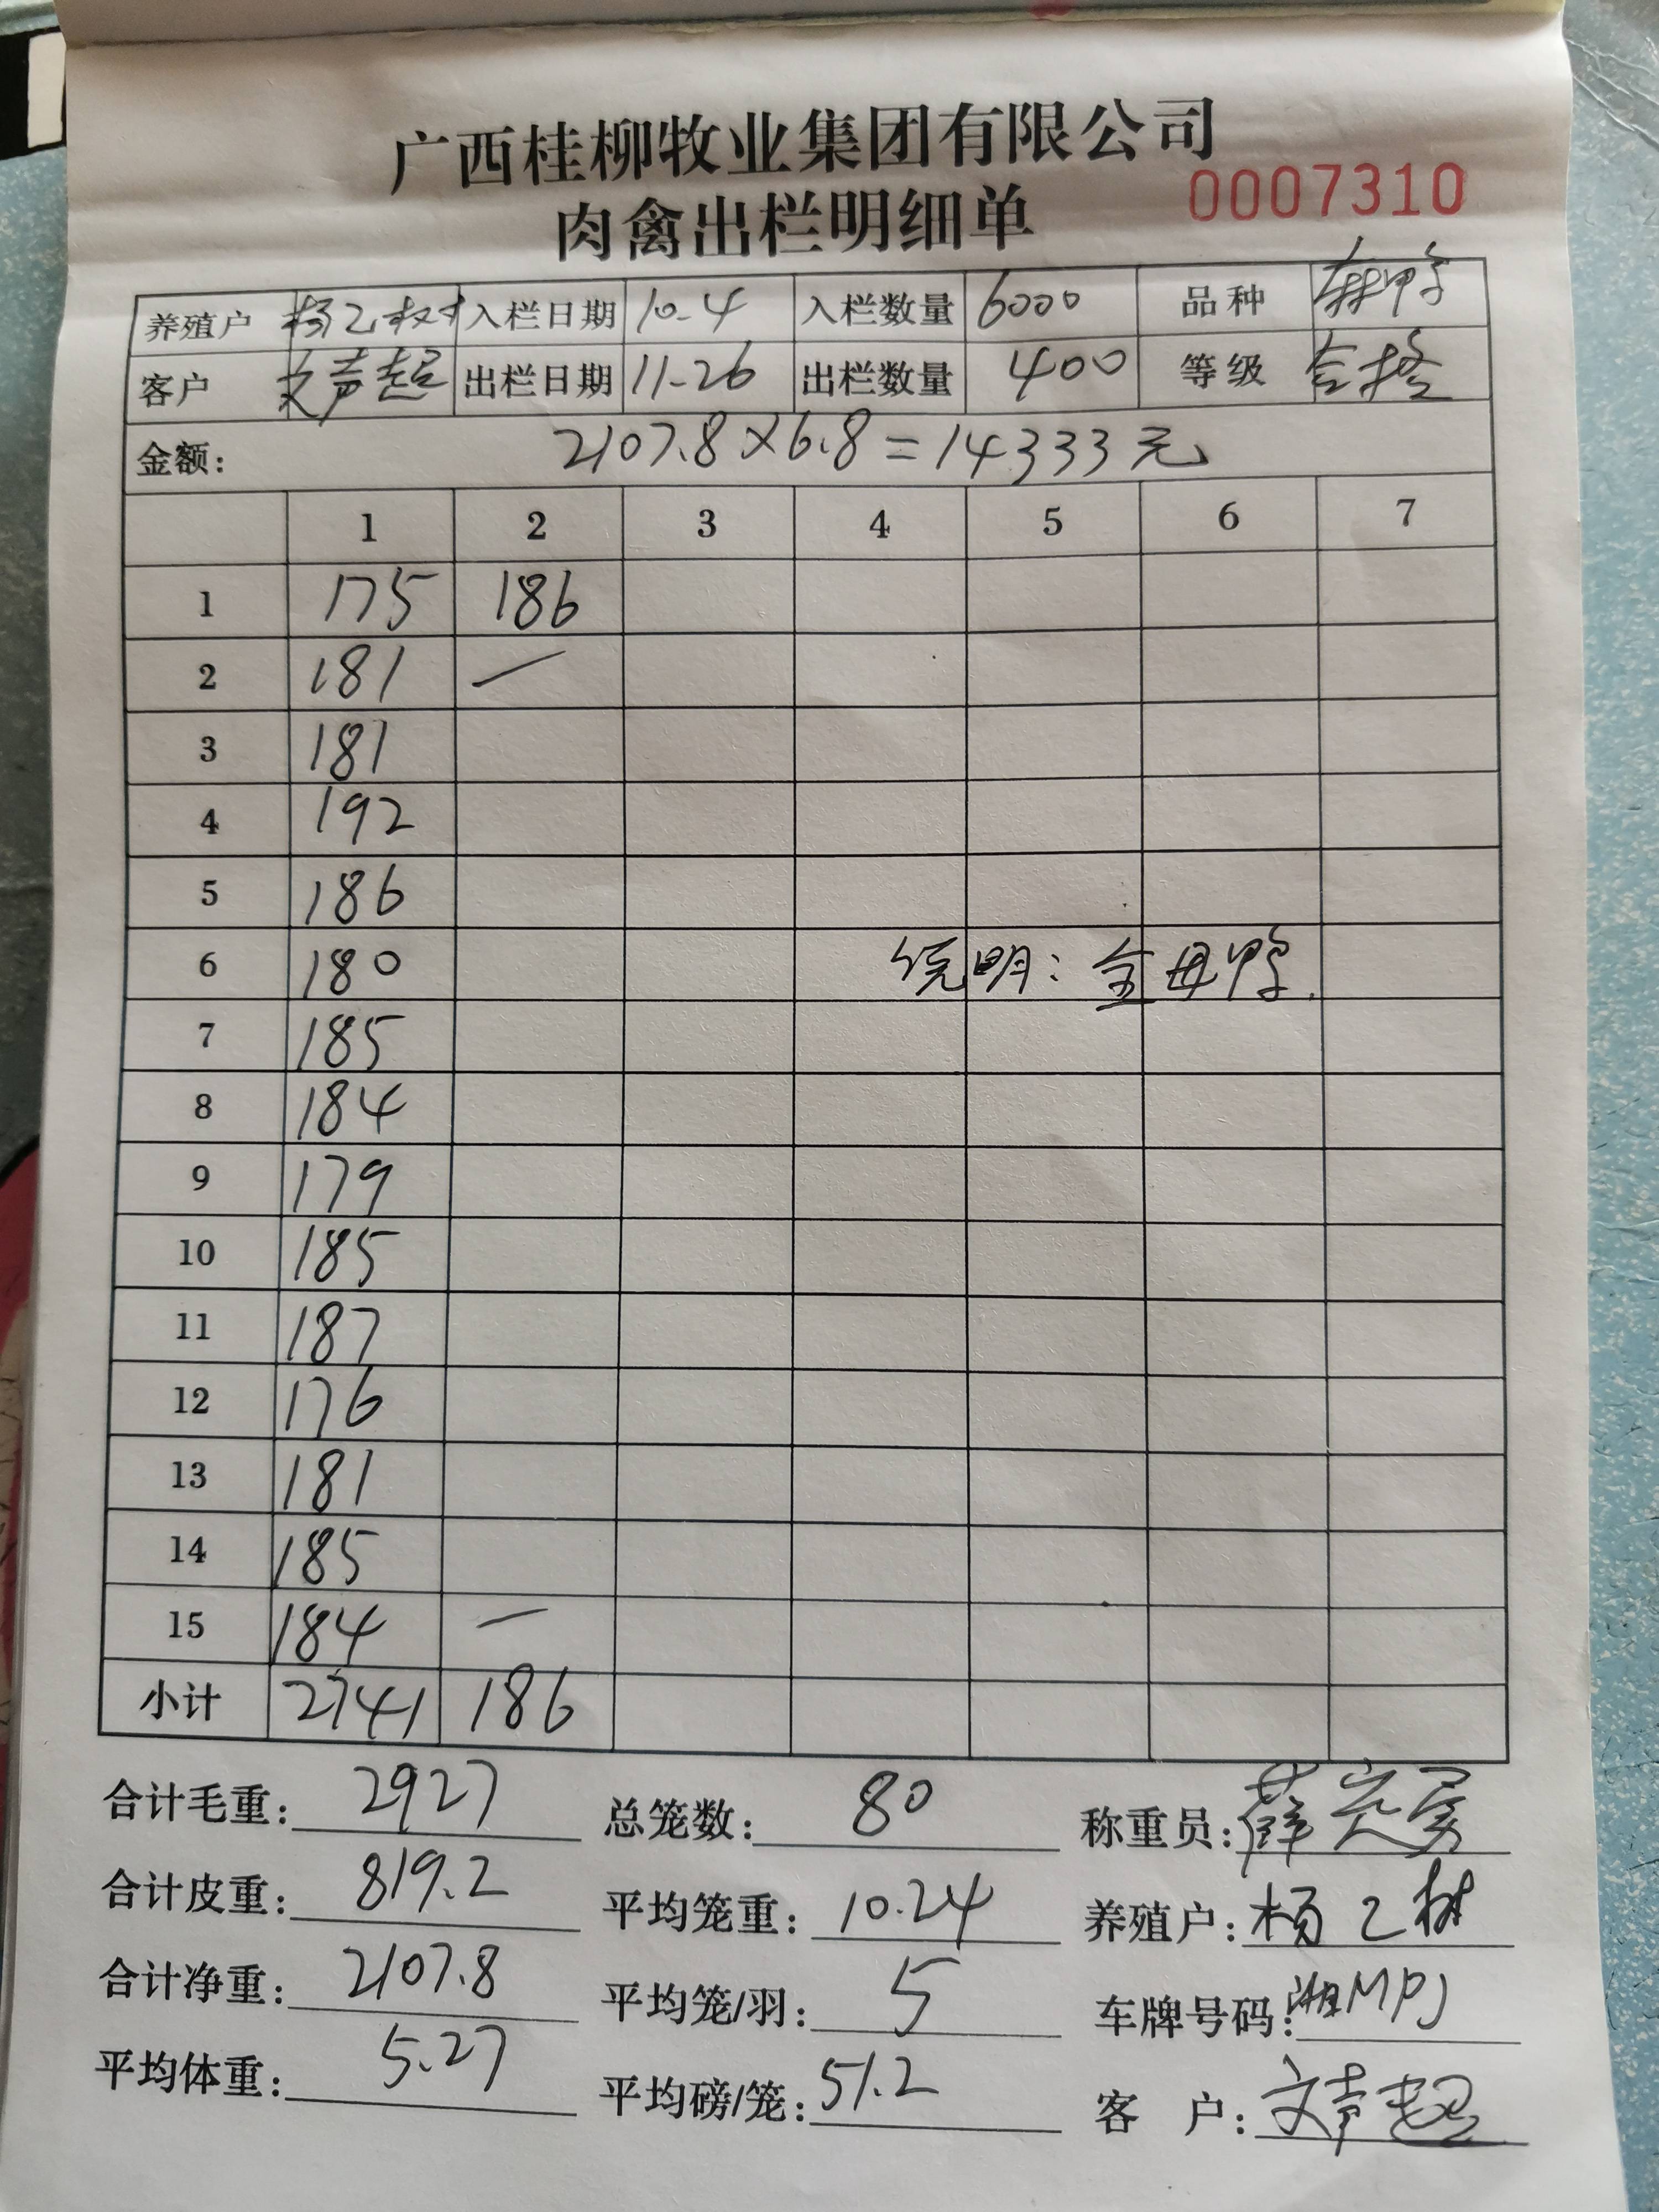 广西桂柳牧业集团有限公司
肉禽出栏明细单 0007310
养殖户 杨乙树 入栏日期 10-4 入栏数量 6000 品种 麻鸭
客户 文声超 出栏日期 11-26 出栏数量 400 等级 合格
金额: 2107.8×6.8=14333元
1 2 3 4 5 6 7
1 175 186
2 181 —
3 181
4 192
5 186
6 180 说明:全母鸭.
7 185
8 184
9 179
10 185
11 187
12 176
13 181
14 185
15 184 —
小计 2741 186
合计毛重: 2927 总笼数: 80 称重员: 薛
合计皮重: 819.2 平均笼重: 10.24 养殖户: 杨乙树
合计净重: 2107.8 平均笼/羽: 5 车牌号码: 湘MPJ
平均体重: 5.27 平均磅/笼: 51.2 客户: 文声超